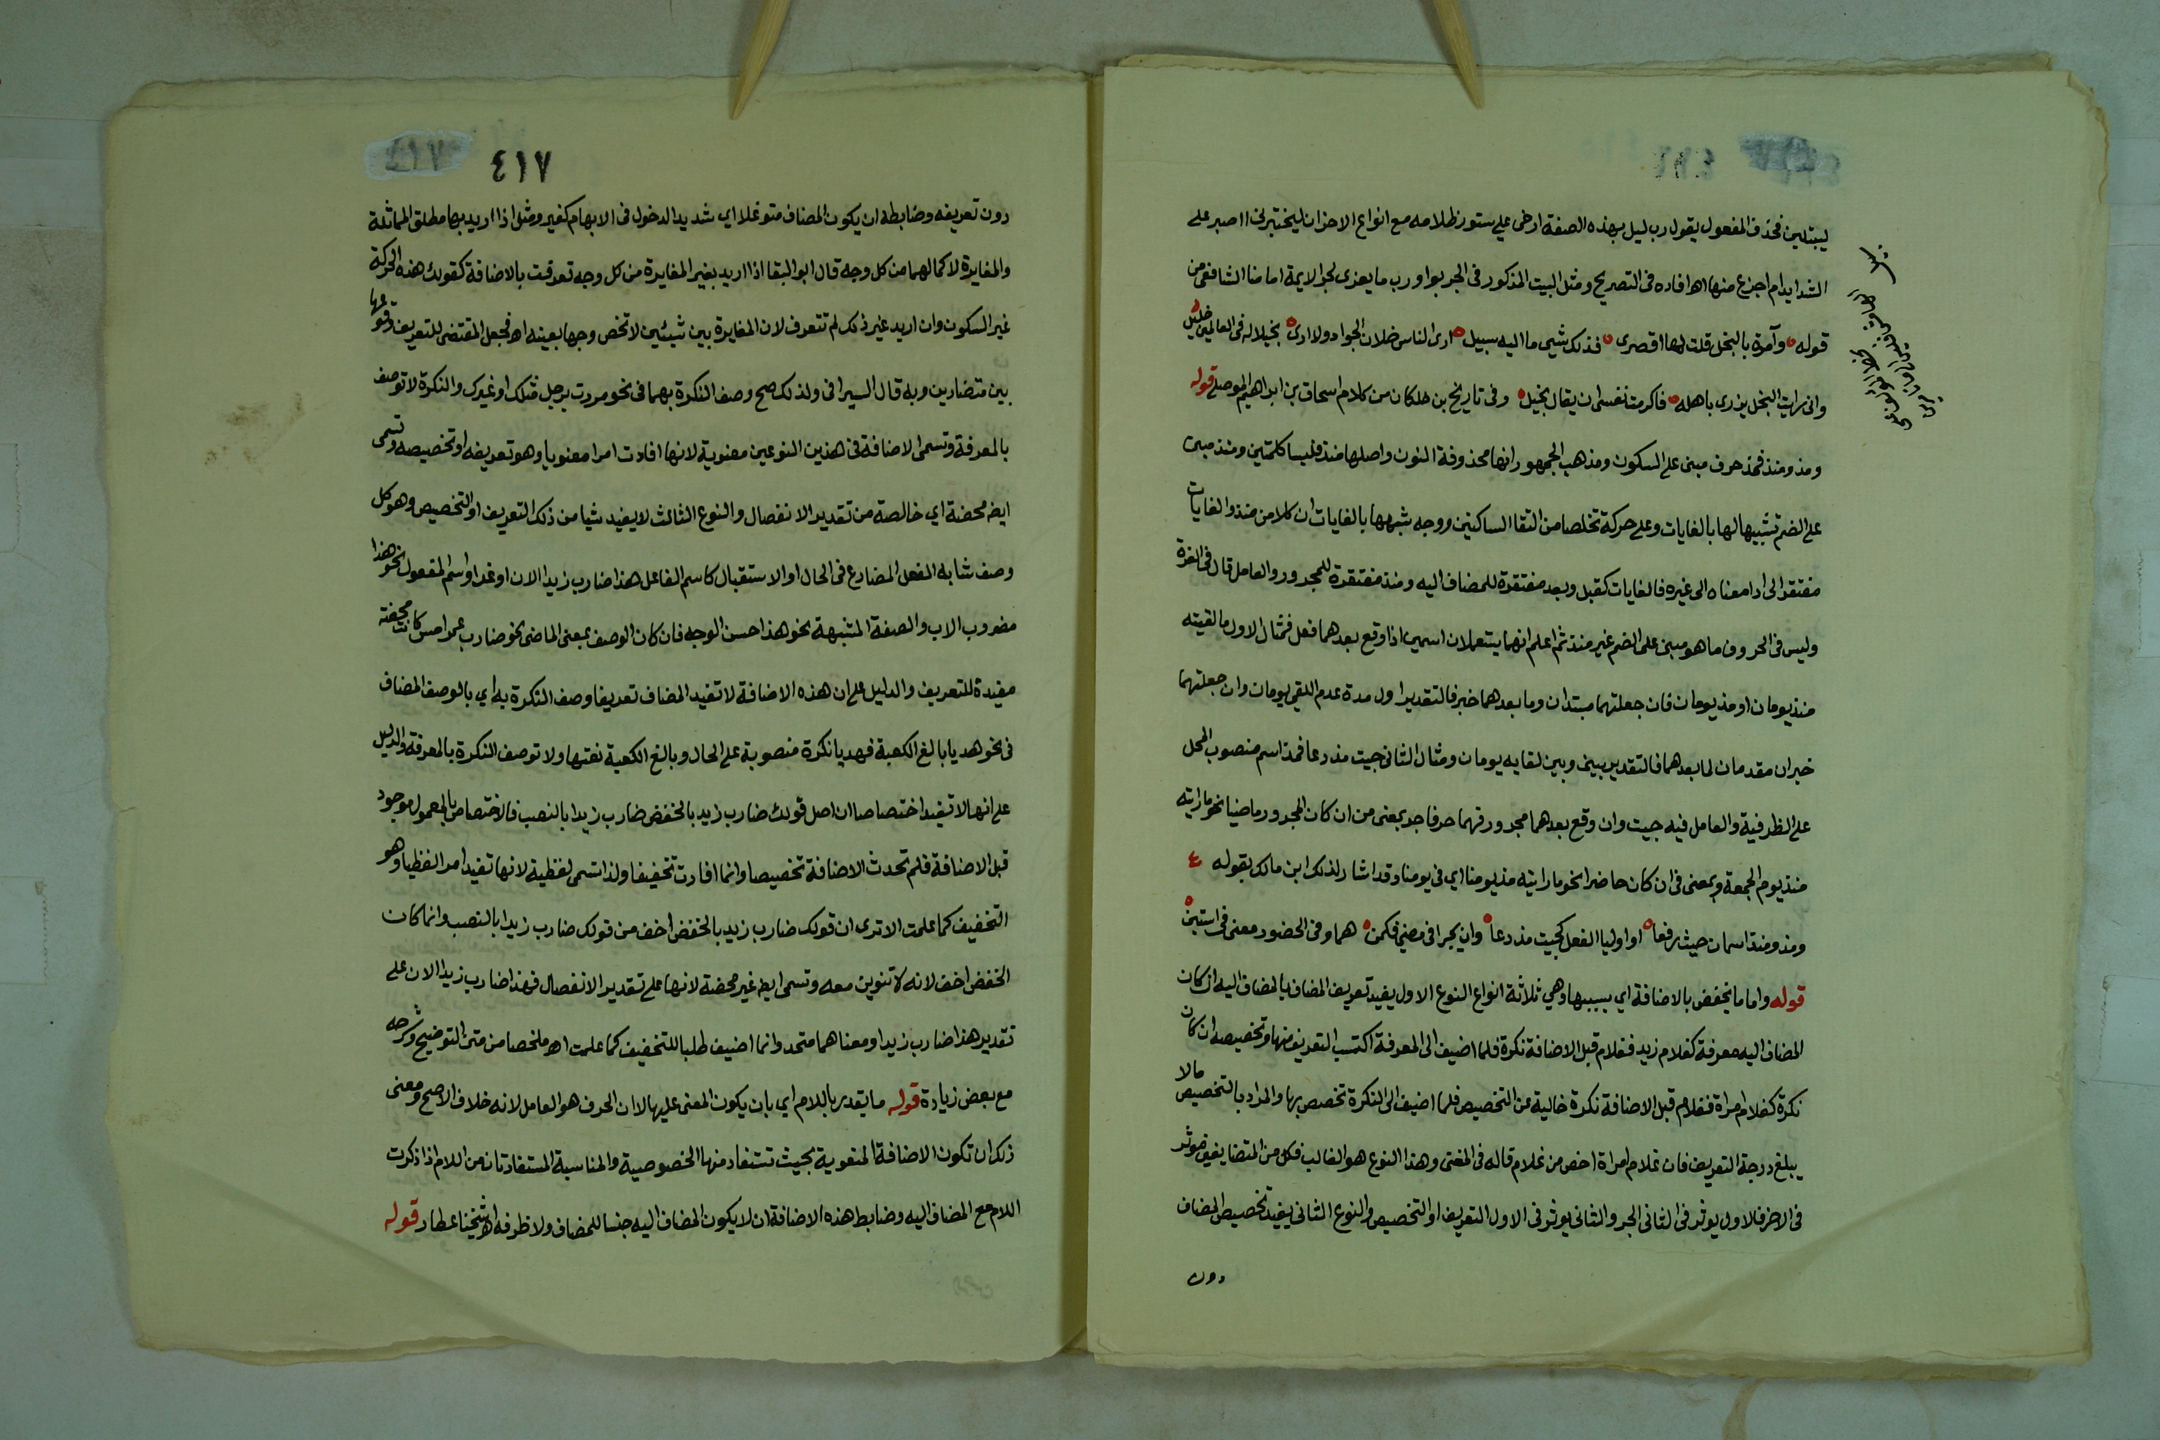 ليبتلين فحذف المفعول يقول رب ليل بهذه الصفة ارخى علي ستور ظلامه مع انواع الاحزان ليختبرني ااصبر على
الشدايد ام اجزع منها اهـ افاده في التصريح ومثل البيت المذكور في الجر بواو رب ما يعزى لبحر الايمة امامنا الشافعي من
قوله وآمرة بالبخل قلت لها اقصرى فذلك شيى ما اليه سبيل ارى الناس خلان الجواد ولا ارى بخيلا له في العالمين خليل
وانى رايت البخل يزرى باهله فاكرمت نفسى ان يقال بخيل وفي تاريخ بن خلكان من كلام اسحاق بن ابراهيم الموصلى قوله
ومذ ومنذ فمذ حرف مبنى على السكون ومذهب الجمهور انها محذوفة النون واصلها منذ فليسا كلمتين ومنذ مبنى
على الضم تشبيها لها بالغايات وعلى حركة تخلصا من التقا الساكنين ووجه شبهها بالغايات ان كلا من منذ والغايات
مفتقر الى ادا معناه الى غيره فالغايات كقبل وبعد مفتقرة للمضاف اليه ومنذ مفتقرة للمجرور والعامل قال في الغرة
وليس في الحروف ما هو مبنى على الضم غير منذ ثم اعلم انهما يستعملان اسمين اذا وقع بعدهما فعل فمثال الاول ما لقيته
منذ يومان او مذ يومان فان جعلتهما مبتدان وما بعدهما خبر فالتقدير اول مدة عدم اللقى يومان وان جعلتهما
خبران مقدمان لما بعدهما فالتقدير بينى وبين لقايه يومان ومثال الثانى جيت مذ دعا فمذ اسم منصوب المحل
على الظرفية والعامل فيه جيت وان وقع بعدهما مجرور فهما حرفا جر بمعنى من ان كان المجرور ماضيا نحو ما رايته
منذ يوم الجمعة وبمعنى في ان كان حاضرا نحو ما رايته مذ يومنا اي في يومنا وقد اشار لذلك ابن مالك بقوله
ومذ ومنذ اسمان حيث رفعا او اوليا الفعل كجيت مذ دعا وان يجرا في مضى فكمن هما وفي الحضور معنى في استبن
قوله واما ما يخفض بالاضافة اي بسببها وهي ثلاثة انواع النوع الاول يفيد تعريف المضاف بالمضاف اليه ان كان
المضاف اليه معرفة كغلام زيد فغلام قبل الاضافة نكرة فلما اضيف الى المعرفة اكتسب التعريف منها وتخصيصه ان كان
نكرة كغلام امراة فغلام قبل الاضافة نكرة خالية عن التخصيص فلما اضيف الى النكرة تخصص بها والمراد بالتخصيص مالا
يبلغ درجة التعريف فان غلام امراة اخص من غلام قاله في المغنى وهذا النوع هو الغالب فكل من المتضايفين موثر
في الاخر فالاول يوثر في الثاني الجر والثاني يوثر في الاول التعريف او التخصيص والنوع الثاني يفيد تخصيص المضاف
دون
٤١٧
دون تعريفه وضابطه ان يكون المضاف متوغلا اي شديد الدخول في الابهام كغير ومثل اذا اريد بهما مطلق المماثلة
والمغايرة لا كمالهما من كل وجه قال ابو البقا اذا اريد بغير المغايرة من كل وجه تعرفت بالاضافة كقولك هذه الحركة
غير السكون وان اريد غير ذلك لم تتعرف لان المغايرة بين شيئين لا تخص وجها بعينه اهـ فجعل المقتضى للتعريف وقوعها
بين متضادين وبه قال السيرافي ولذلك صح وصف النكرة بهما في نحو مررت برجل مثلك او غيرك والنكرة لا توصف
بالمعرفة وتسمى الاضافة في هذين النوعين معنوية لانها افادت امرا معنويا وهو تعريفه او تخصيصه وتسمى
ايضا محضة اي خالصة من تقدير الانفصال والنوع الثالث لا يفيد شيا من ذلك التعريف او التخصيص وهو كل
وصف شابه الفعل المضارع في الحال او الاستقبال كاسم الفاعل هذا ضارب زيد الان او غدا او اسم المفعول نحو هذا
مضروب الاب والصفة المشبهة نحو هذا حسن الوجه فان كان الوصف بمعنى الماضي نحو ضارب عمرو امس كانت محضة
مفيدة للتعريف والدليل على ان هذه الاضافة لا تفيد المضاف تعريفا وصف النكرة به اي بالوصف المضاف
في نحو هديا بالغ الكعبة فهديا نكرة منصوبة على الحال وبالغ الكعبة نعتها ولا توصف النكرة بالمعرفة والدليل
على انها لا تفيد اختصاصا ان اصل قولك ضارب زيد بالخفض ضارب زيدا بالنصب فالاختصاص بالمعمول موجود
قبل الاضافة فلم تحدث الاضافة تخصيصا وانما افادت تخفيفا ولذا تسمى لفظية لانها تفيد امرا لفظيا وهو
التخفيف كما علمت الا ترى ان قولك ضارب زيد بالخفض اخف من قولك ضارب زيدا بالنصب وانما كان
الخفض اخف لانه لا تنوين معه وتسمى ايضا غير محضة لانها على تقدير الانفصال فهذا ضارب زيد الان على
تقدير هذا ضارب زيدا ومعناهما متحد وانما اضيف طلبا للتخفيف كما علمت اهـ ملخصا من متن التوضيح وشرحه
مع بعض زيادة قوله ما يقدر باللام اي بان يكون المعنى عليها لا ان الحرف هو العامل لانه خلاف الاصح ومعنى
ذلك ان تكون الاضافة المنعوية بحيث تستفاد منها الخصوصية والمناسبة المستفادتان من اللام اذا ذكرت
اللام مع المضاف اليه وضابط هذه الاضافة ان لا يكون المضاف اليه جنسا للمضاف ولا ظرفه اهـ شيخنا عطار قوله